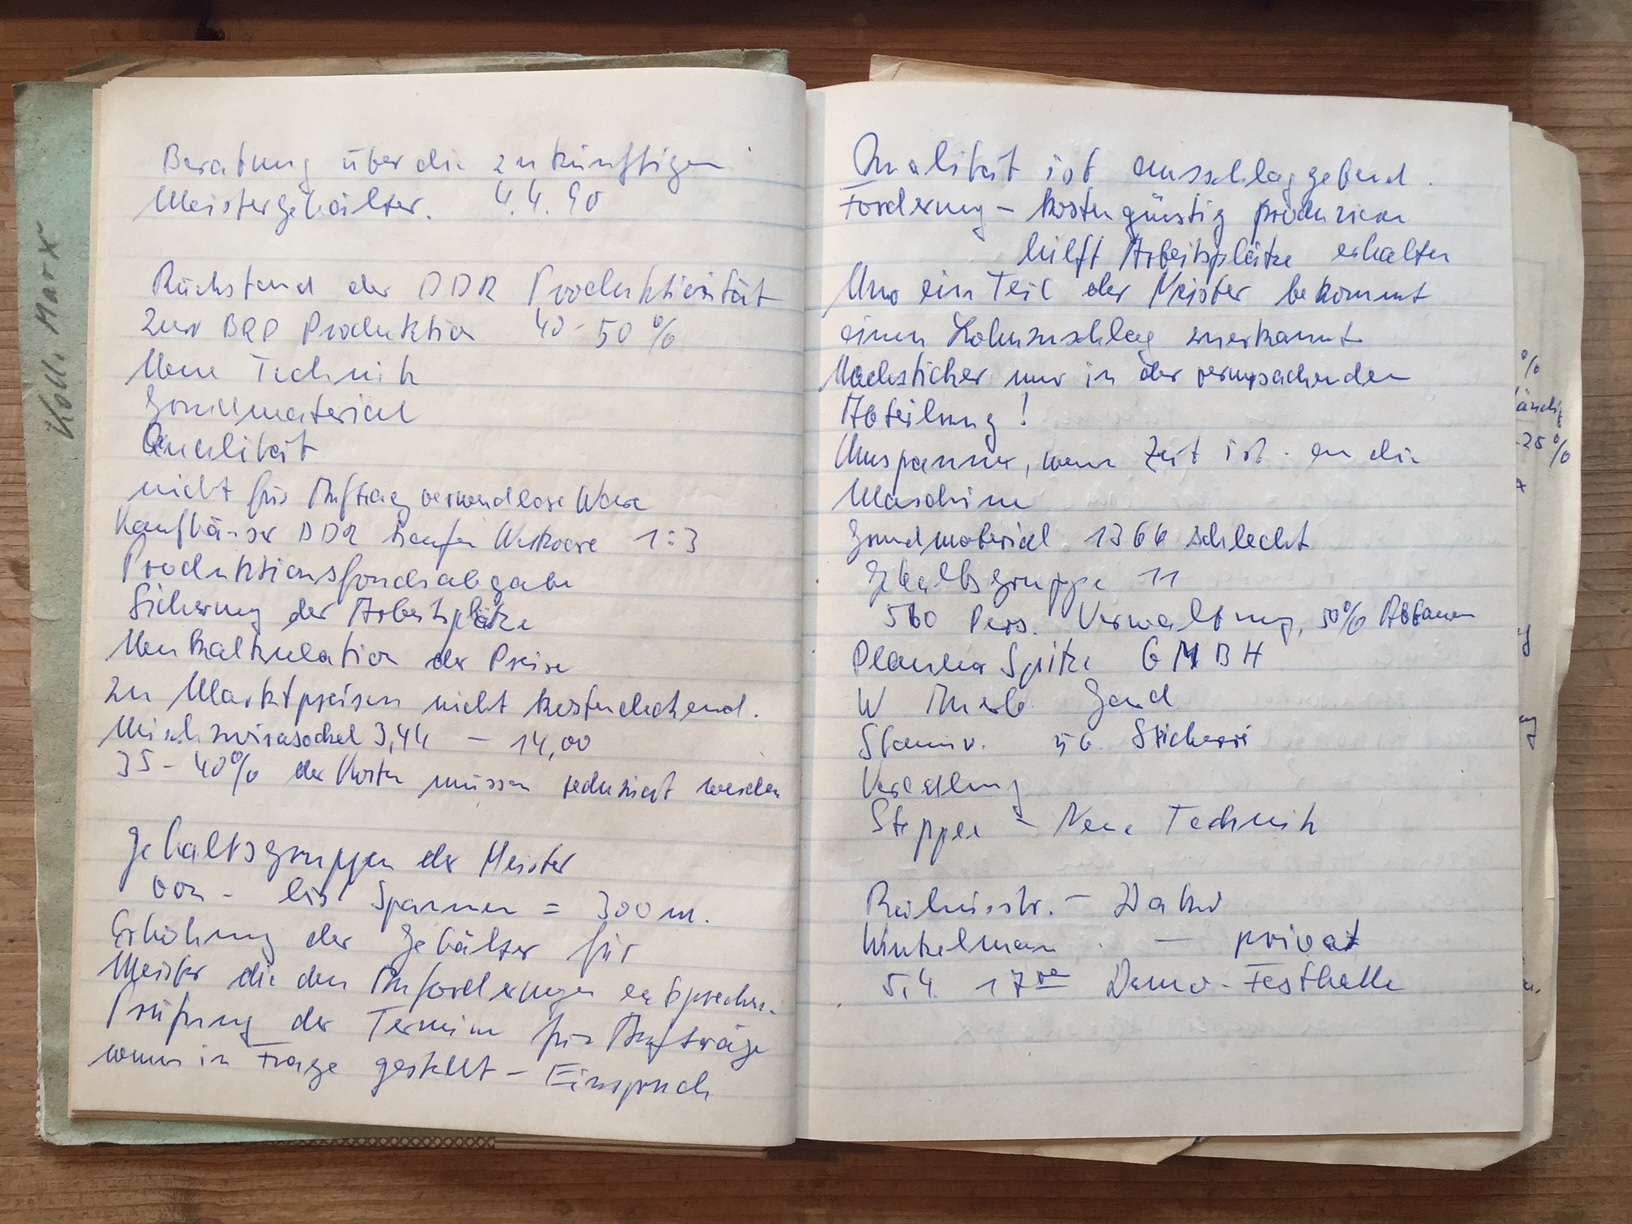 Koll. Marx
Beratung über die zukünftigen
Meistergehälter. 4.4.90
Rückstand der DDR Produktivität
zur BRD Produktion 40-50%
Neue Technik
Grundmaterial
Qualität
nicht für Auftrag verwendbare Ware
Kaufhäuser DDR kaufen Westware 1:3
Produktionsfondsabgabe
Sicherung der Arbeitsplätze
Neukalkulation der Preise
zu Marktpreisen nicht kostendeckend.
3,44 - 14,00
35-40% der Kosten müssen reduziert werden
Gehaltsgruppen der Meister
von - bis Spannen = 300 M.
Erhöhung der Gehälter für
Meister die den Anforderungen entsprechen.
Prüfung der Termine für Aufträge
wenn in Frage gestellt - Einspruch
Qualität ist ausschlaggebend.
Forderung - kostengünstig produzieren
hilft Arbeitsplätze erhalten
Nur ein Teil der Meister bekommt
einen Lohnzuschlag anerkannt
Nachsticker nur in der verursachenden
Abteilung!
Umspanner, wenn Zeit ist - an die
Maschine
Grundmaterial 1366 schlecht
Gehaltsgruppe 11
560 Pers. Verwaltung, 50% Abbauen
Plauener Spitze GMBH
W
Stickerei
Veredlung
Stepperei - Neue Technik
Winkelman - privat
5.4. 17 00 Demo - Festhalle
%
25%